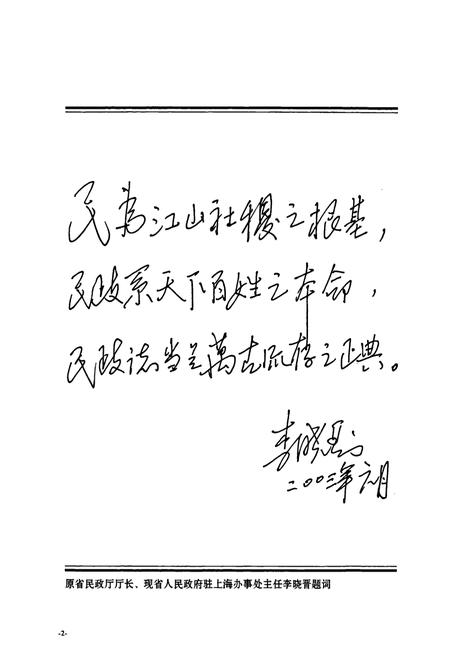 民为江山社稷之根基，
民政系天下百姓之本命，
民政志当是万古流存之正典。
李晓晋
二〇〇三年六月
原省民政厅厅长、现省人民政府驻上海办事处主任李晓晋题词
-2-